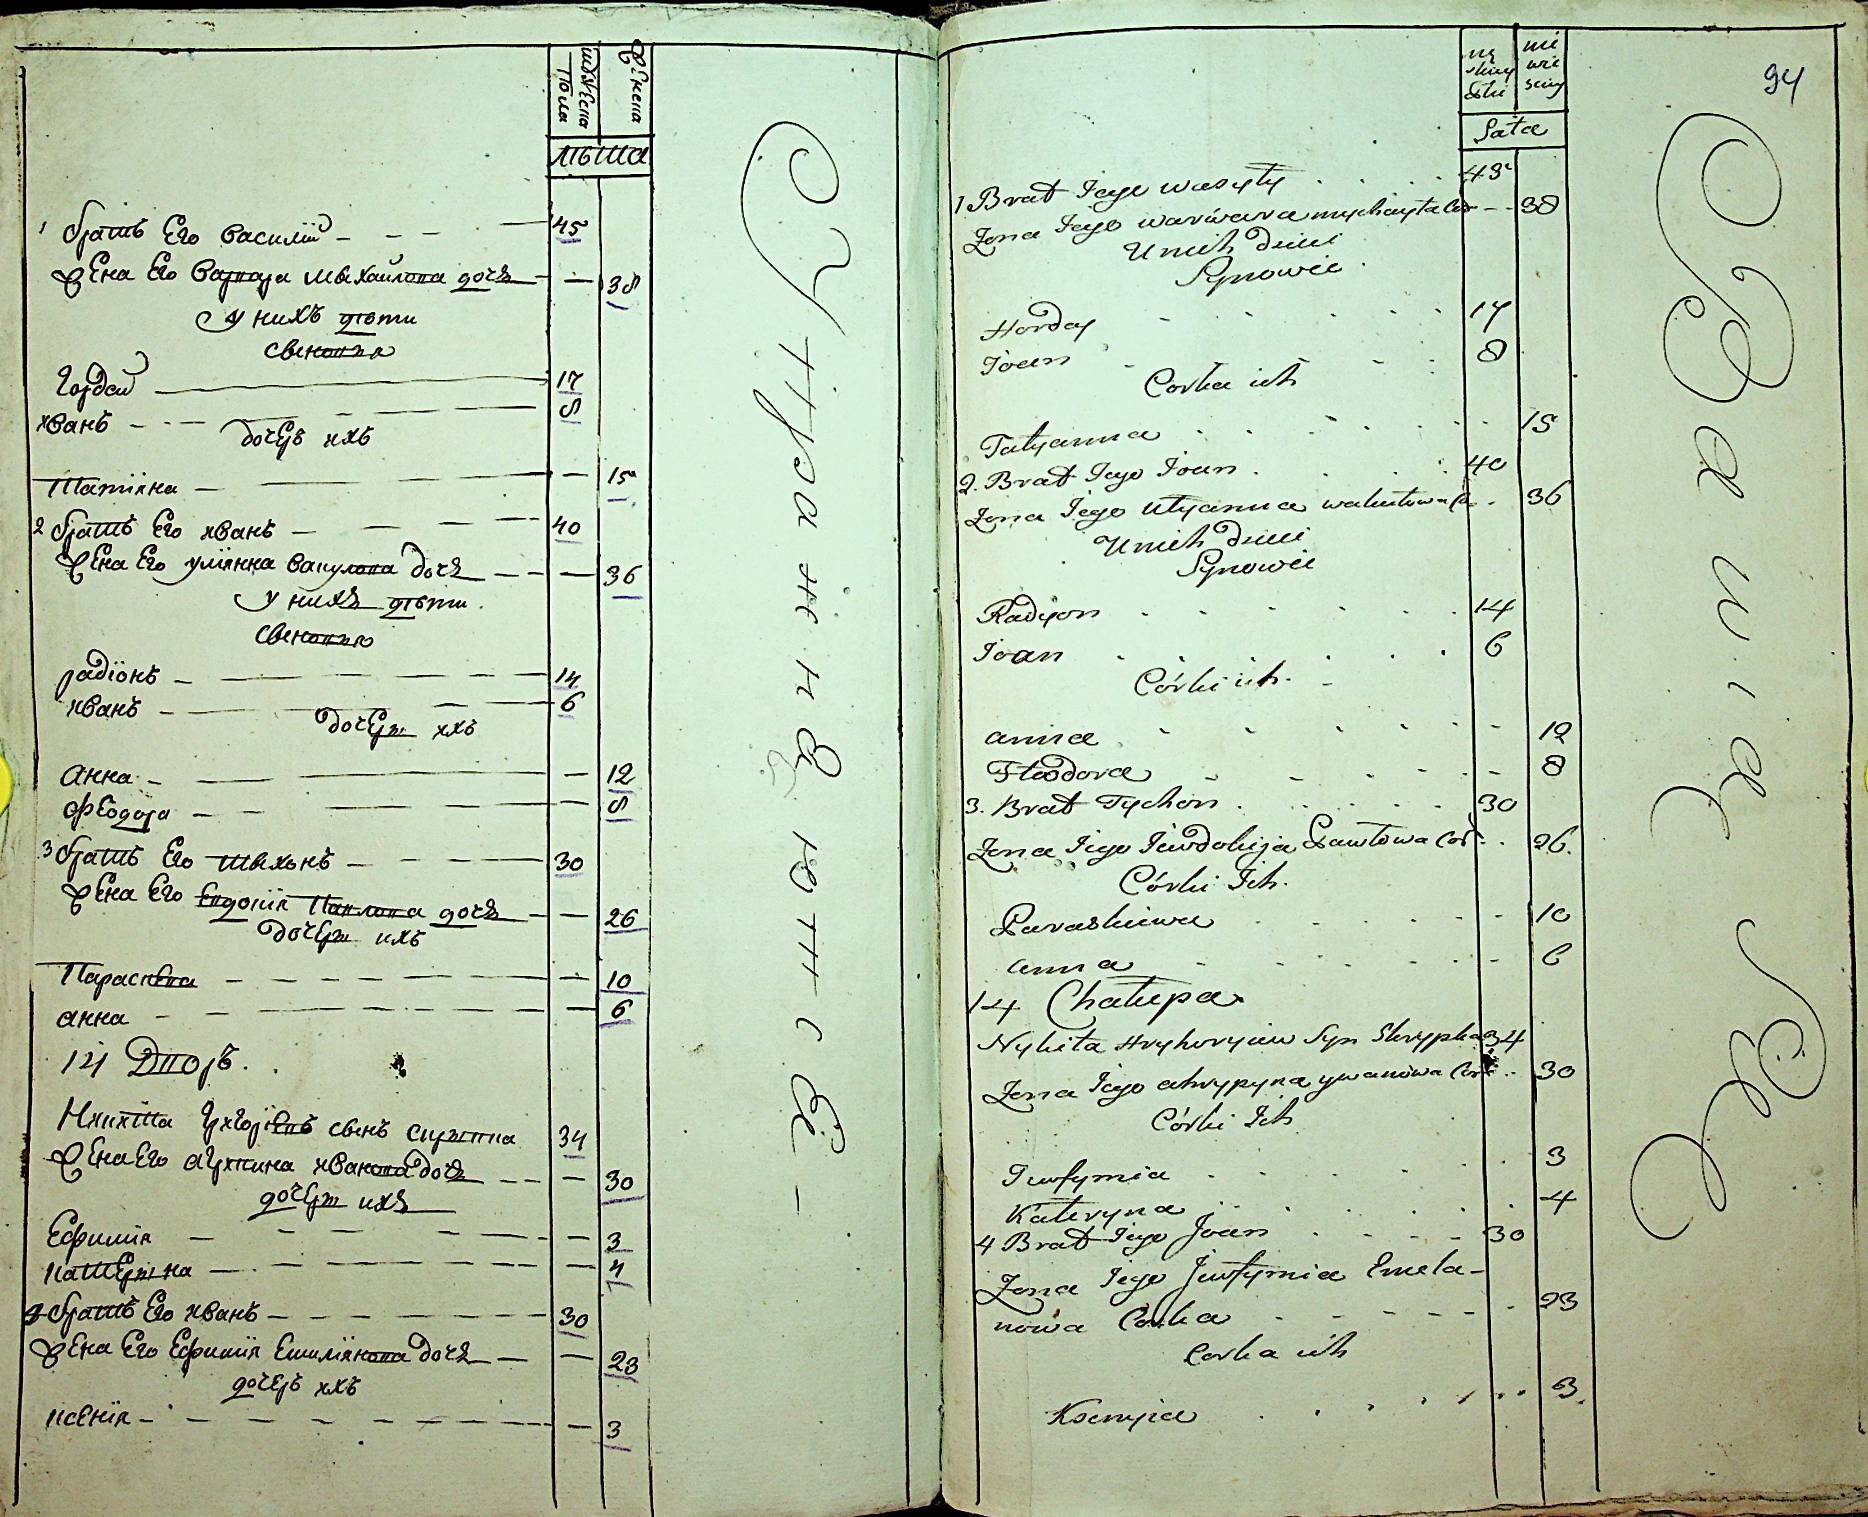 мужеска пола
женска
лѣта
1 братъ Его василій 45
жена Его варвара михайлова дочь 38
у нихъ дѣти
сыновья
Гордей 17
иванъ 8
дочерь ихъ
Татіяна 15
2 братъ Его иванъ 40
жена Его уліянна вакулова дочь 36
у нихъ дѣти
сыновья
радіонъ 14
иванъ 6
дочери ихъ
анна 12
феодора 8
3 братъ Его тихонъ 30
жена Его Евдокія Павлова дочь 26
дочери ихъ
Парасκева 10
анна 6
14 Дворъ
Никита Григоріевъ сынъ скрипка 34
жена Его агрипина иванова дочь 30
дочери ихъ
Ефимія 3
катерина 4
4 братъ Его иванъ 30
жена Его Ефимія Емиліянова дочь 23
дочерь ихъ
ксенія 3
94
męskiey płci
niewieściey
Łata
1 Brat Jego wasyły 45
Zona Jego warwara mychayłowa 38
U nich dzieci
Synowie
Horday 17
Joan 8
Corka ich
Tatyanna 15
2. Brat Jego Joan 40
Zona Jego Ulyanna wakułowa 36
U nich dzieci
Synowie
Radyon 14
Joan 6
Córki ich
anna 12
Fteodora 8
3. Brat Tychon 30
Zona Jego Jewdokija Pawłowa Cor 26
Córki Ich
Paraskiewa 10
anna 6
14 Chałupa
Nykita Hryhoryiew Syn Skrypka 34
Zona Jego ahrypyna ywanowa Cor 30
Córki Ich
Jewfymia 3
Kateryna 4
4 Brat Jego Joan 30
Zona Jego Jewfymia Emela-
nowa Corka 23
Corka ich
Ksenyia 3